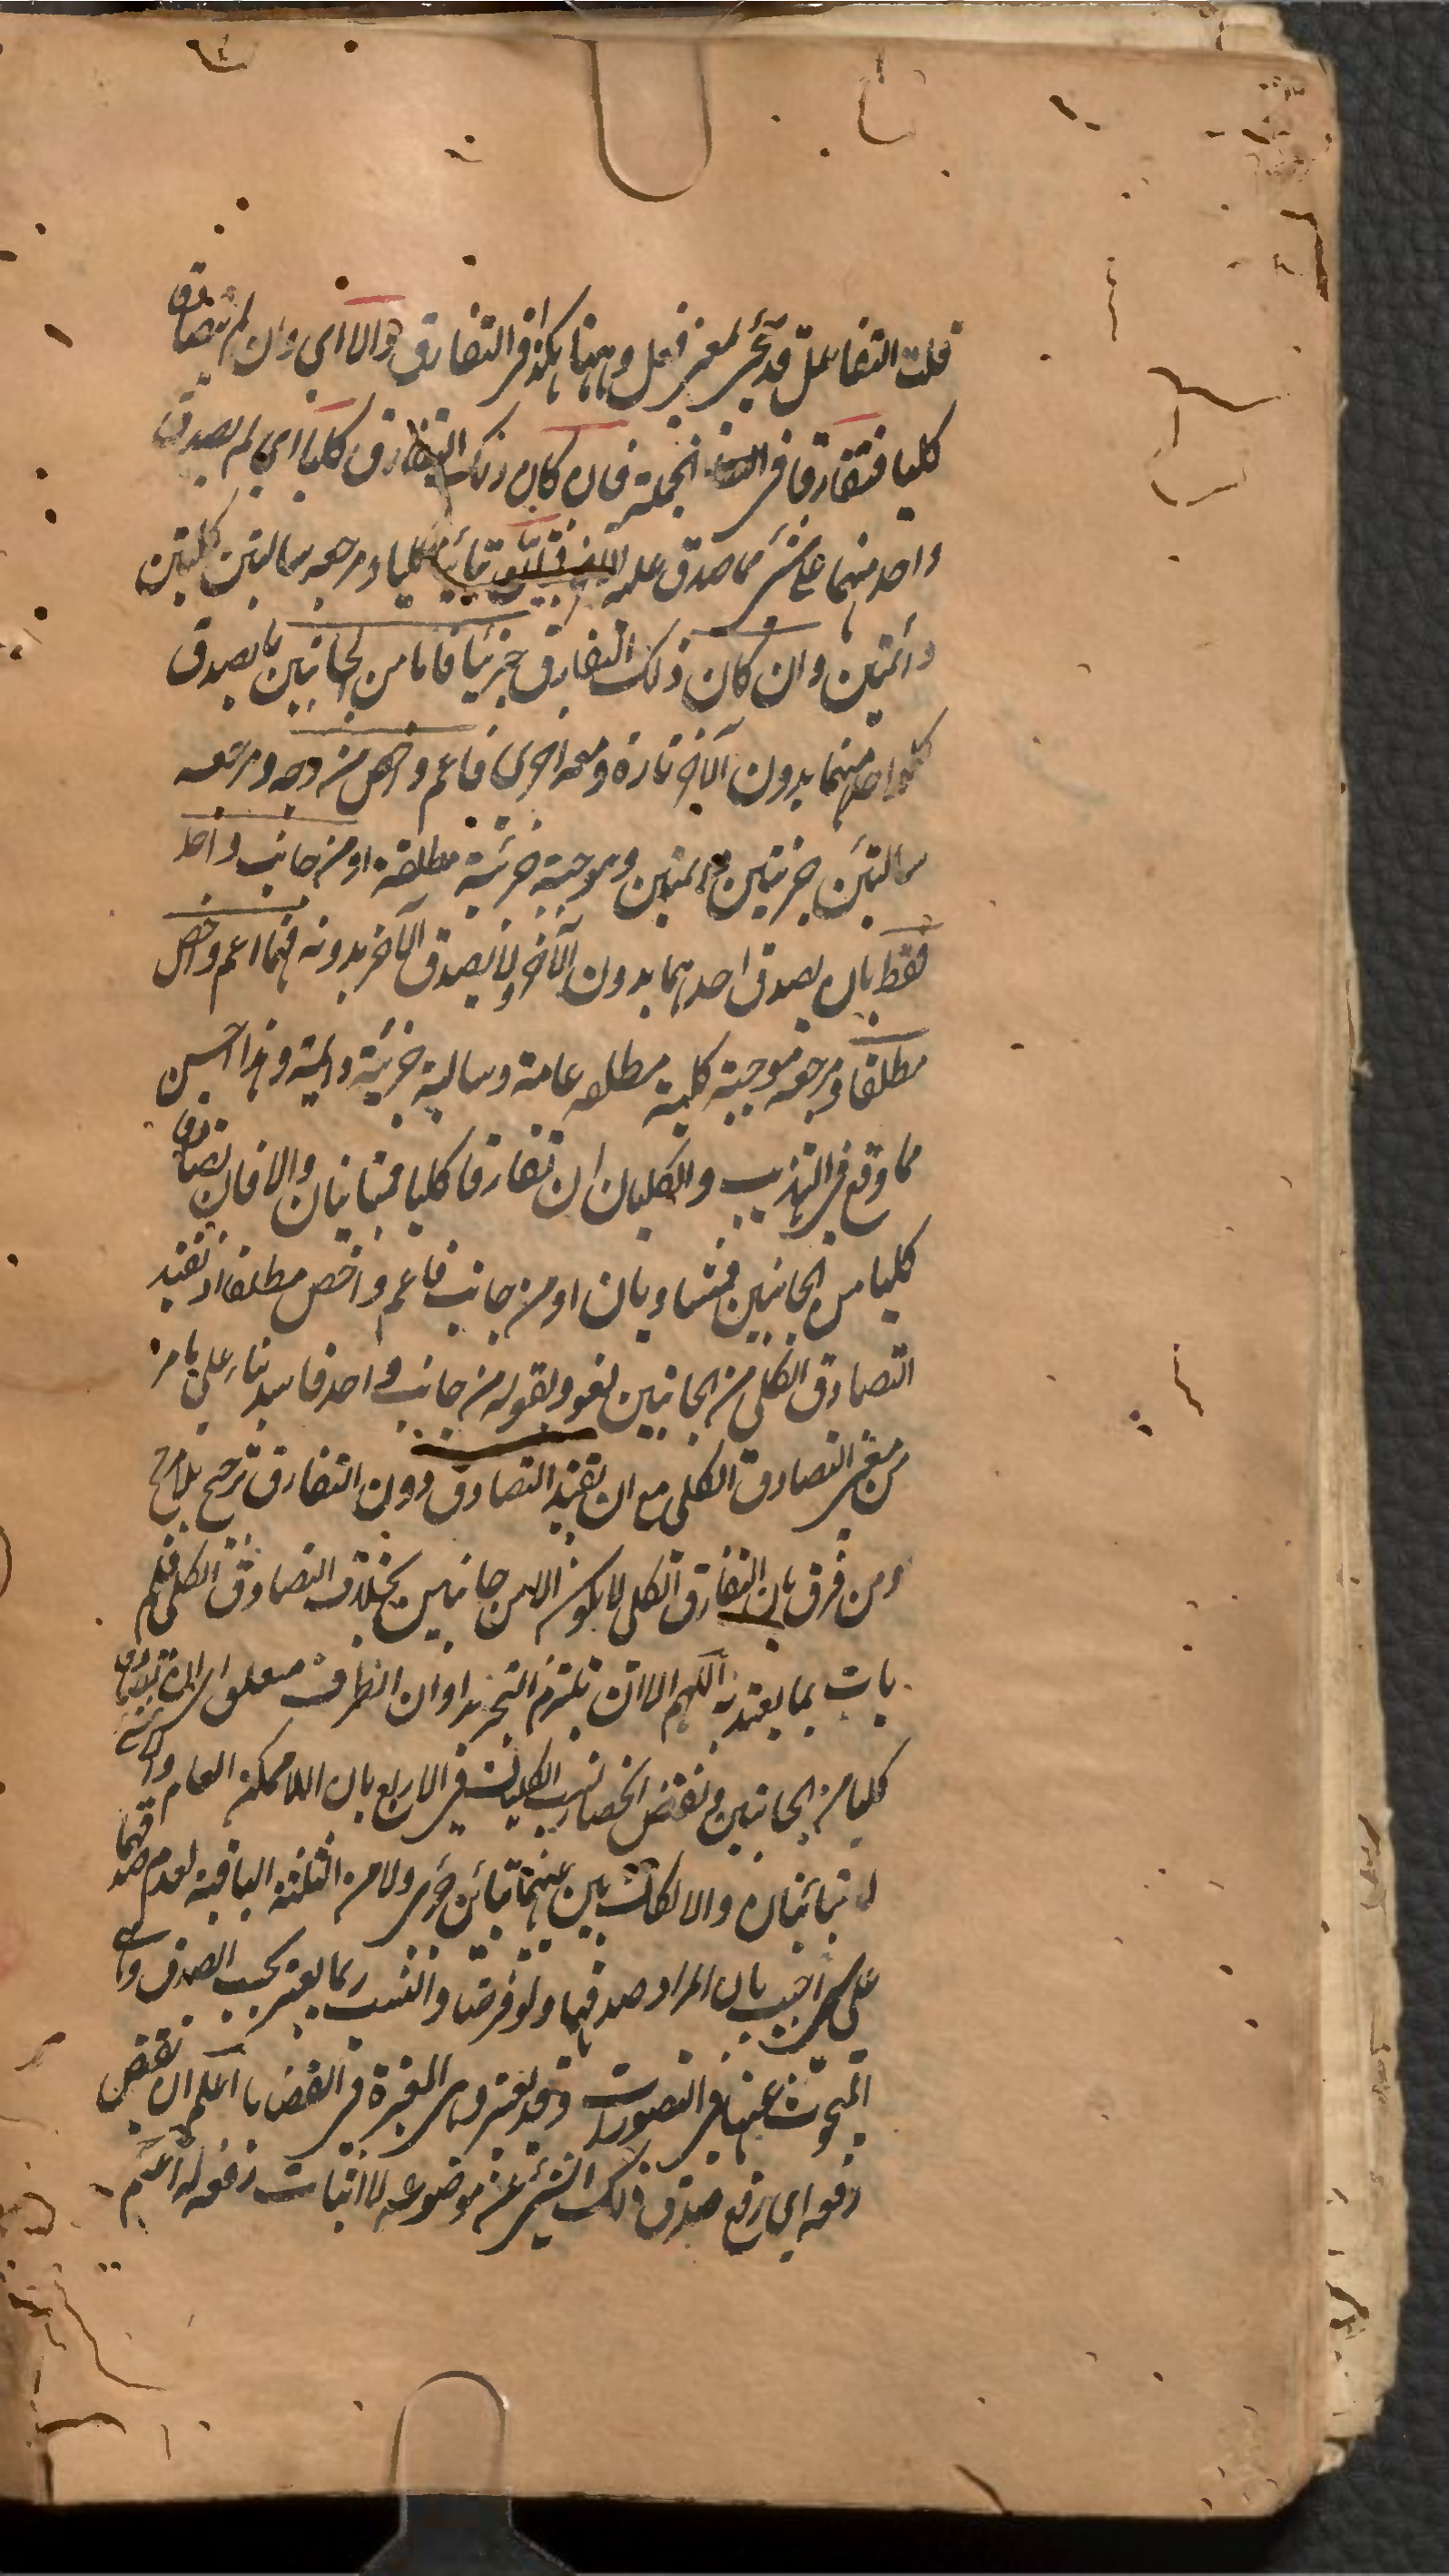 قلت التفاعل قد يجئ لمعنى فعل وههنا هكذا فى التفارق والا اى وان لم يتصادقا
كليا فتفارقا فى الجملة فان كان ذلك التفارق كليا اى لم يصدق
واحد منهما على شئ مما صدق عليه الآخر فتباينا كليا ومرجعه سالبتين كليتين
دائمتين وان كان ذلك التفارق جزئيا فاما من الجانبين بان يصدق
كل واحد منهما بدون الآخر تارة ومعه اخرى فاعم واخص من وجه ومرجعه
سالبتين جزئيتين دائمتين وموجبة جزئية مطلقة او من جانب واحد
فقط بان يصدق احدهما بدون الآخر ولا يصدق الآخر بدونه فهما اعم واخص
مطلقا ومرجعه موجبة كلية مطلقه عامة وسالبة جزئية دائمة وهذا احسن
مما وقع فى التهذيب والكليان ان تفارقا كليا فمتباينان والا فان تصادقا
كليا من الجانبين فمتساويان او من جانب فاعم واخص مطلقا اذ تقييد
التصادق الكلى من الجانبين لغو وبقوله من جانب واحد فاسد بناء على ما مر
من معنى التصادق الكلى مع ان تقييد التصادق دون التفارق ترجيح بلا مرجح
ومن فرق بان التفارق الكلى لا يكون الا من جانبين بخلاف التصادق الكلى فلم
يات بما يعتد به اللهم الا ان يلتزم التجريد او ان الظرف متعلق اى ان تصادقا
كليا من الجانبين ونقض انحصار نسب الكليات فى الاربع بان اللاممكن العام واللاشئ
لا تباينان والا لكان بين عينيهما تباين جزئى ولا من الثلثة الباقية لعدم صدقهما
على شئ اجيب بان المراد صدقهما ولو فرضا والنسب ربما يعتبر بحسب الصدق وهى
المبحوث عنها فى التصورات وقد يعتبر وهى المعتبرة فى القضايا اعلم ان نقيض
رفعه اى رفع صدق ذلك الشئ عن موضوعه لا اثبات رفعه له اعلم